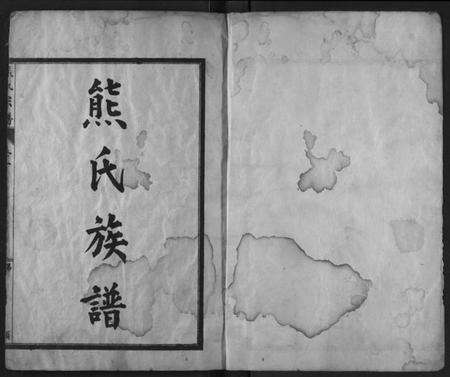 熊氏族譜